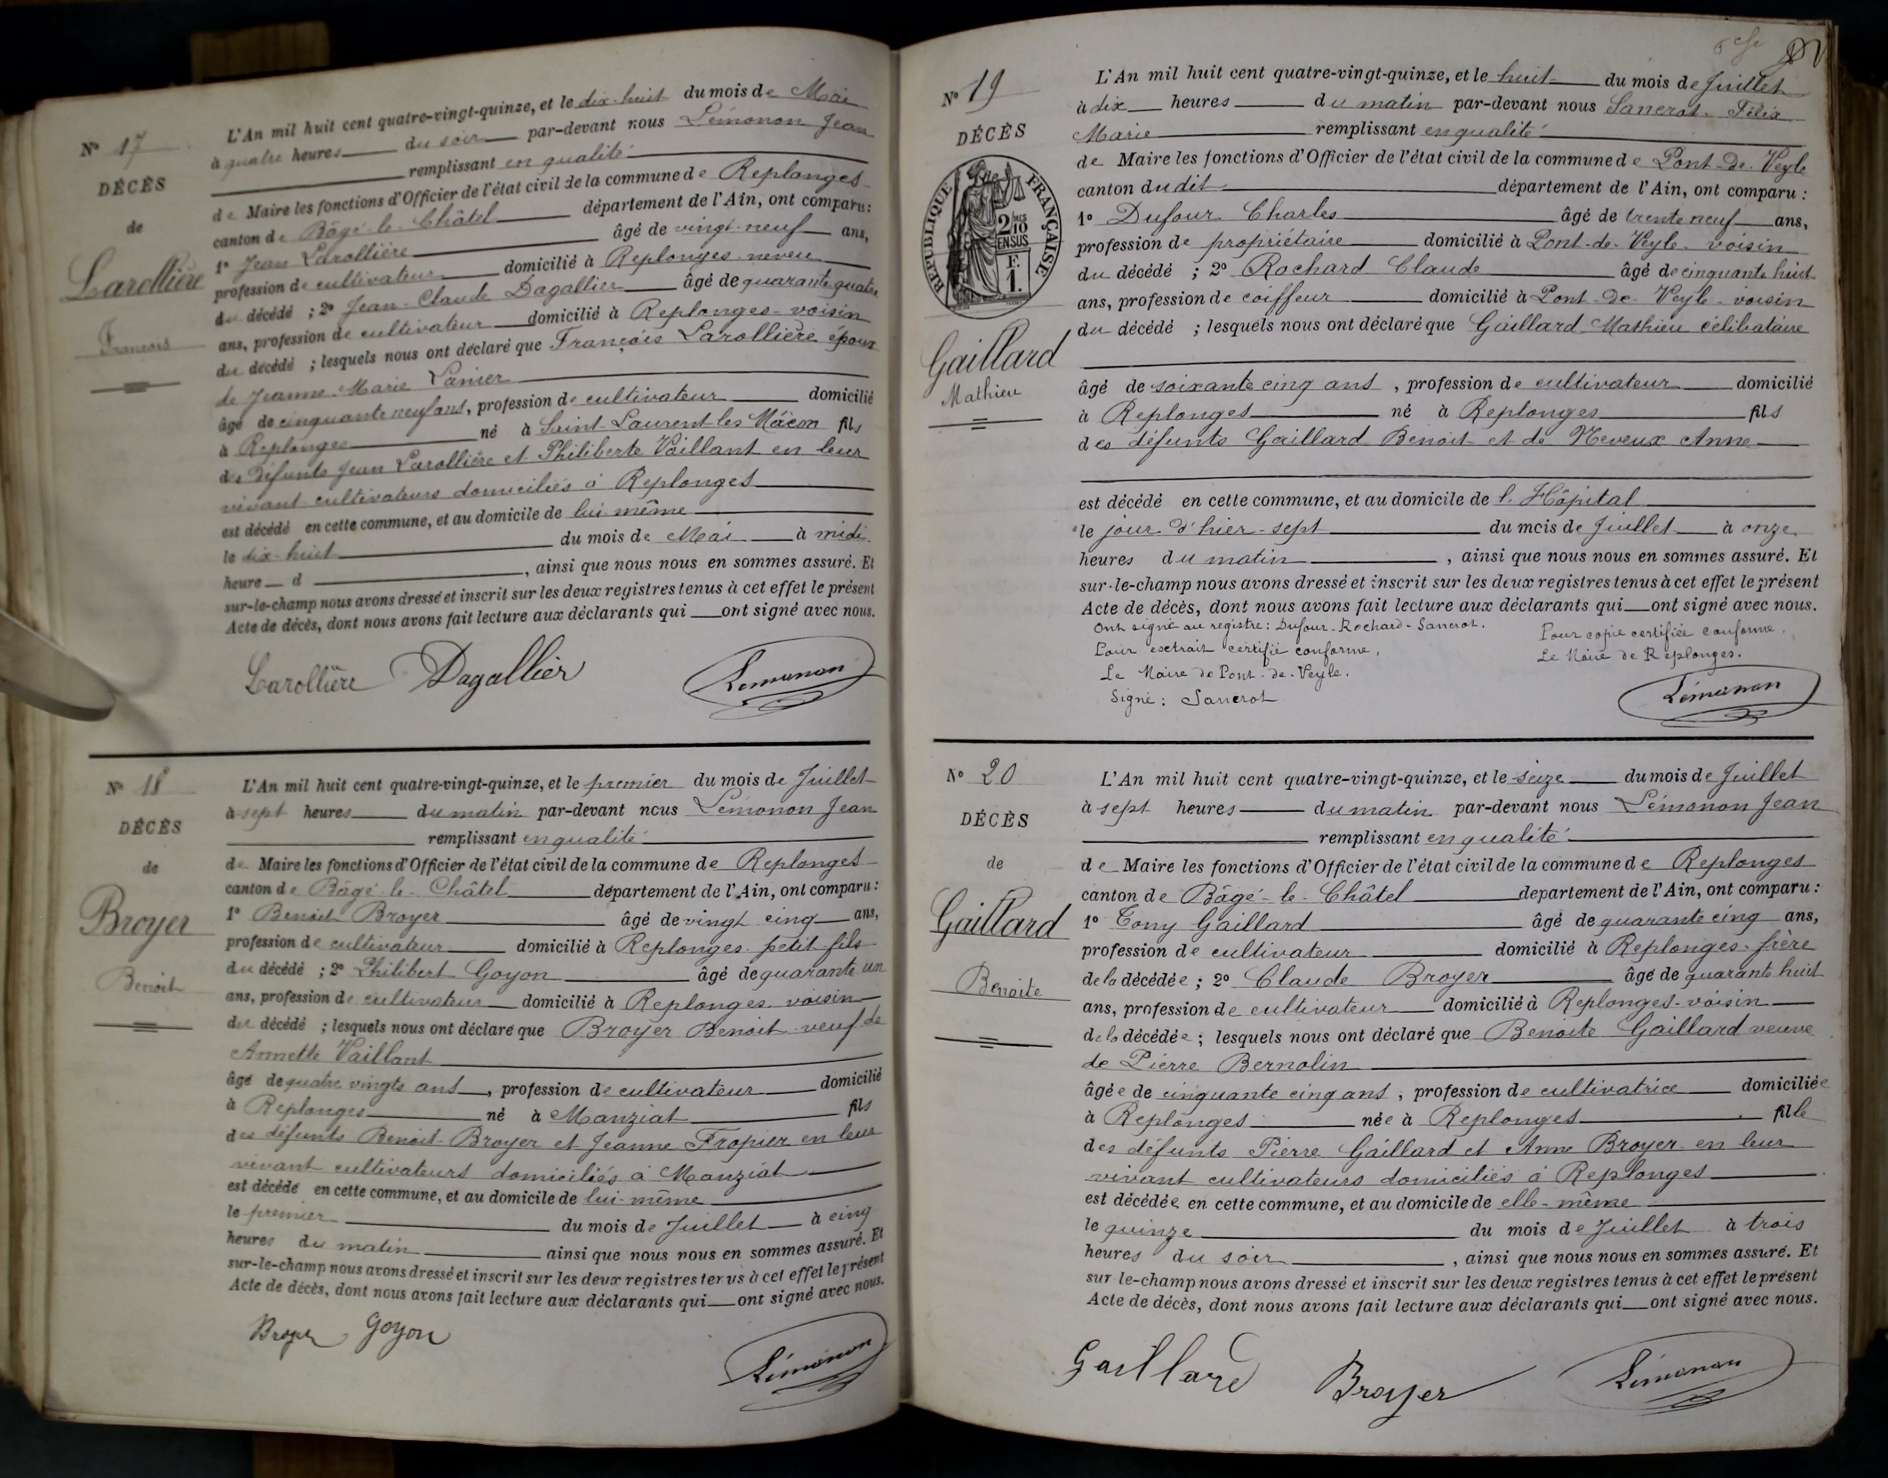 Nº 17
DÉCÈS
de
Larollière
François
L'An mil huit cent quatre-vingt-quinze, et le dix-huit du mois de Mai
à quatre heures du soir par-devant nous Lémonon Jean
remplissant en qualité
de Maire les fonctions d'Officier de l'état civil de la commune de Replonges
canton de Bâgé-le-Châtel département de l'Ain, ont comparu:
1º Jean Larollière âgé de vingt-neuf ans,
profession de cultivateur domicilié à Replonges neveu
du décédé ; 2º Jean-Claude Dagallier âgé de quarante quatre
ans, profession de cultivateur domicilié à Replonges-voisin
du décédé ; lesquels nous ont déclaré que François Larollière époux
de Jeanne-Marie Lanier
âgé de cinquante neuf ans, profession de cultivateur domicilié
à Replonges né à Saint-Laurent-les-Mâcon fils
des défunts Jean Larollière et Philiberte Vaillant en leur
vivant cultivateurs domiciliés à Replonges
est décédé en cette commune, et au domicile de lui-même
le dix-huit du mois de Mai à midi
heure d , ainsi que nous nous en sommes assuré. Et
sur-le-champ nous avons dressé et inscrit sur les deux registres tenus à cet effet le présent
Acte de décès, dont nous avons fait lecture aux déclarants qui ont signé avec nous.
Larollière Dagallier Lémonon
Nº 18
DÉCÈS
de
Broyer
Benoit
L'An mil huit cent quatre-vingt-quinze, et le premier du mois de Juillet
à sept heures du matin par-devant nous Lémonon Jean
remplissant en qualité
de Maire les fonctions d'Officier de l'état civil de la commune de Replonges
canton de Bâgé-le-Châtel département de l'Ain, ont comparu:
1º Benoit Broyer âgé de vingt cinq ans,
profession de cultivateur domicilié à Replonges petit fils
du décédé ; 2º Philibert Goyon âgé de quarante un
ans, profession de cultivateur domicilié à Replonges voisin
du décédé ; lesquels nous ont déclaré que Broyer Benoit veuf de
Annette Vaillant
âgé de quatre vingts ans, profession de cultivateur domicilié
à Replonges né à Manziat fils
des défunts Benoit Broyer et Jeanne Fropier en leur
vivant cultivateurs domiciliés à Manziat
est décédé en cette commune, et au domicile de lui-même
le premier du mois de Juillet à cinq
heures du matin ainsi que nous nous en sommes assuré. Et
sur-le-champ nous avons dressé et inscrit sur les deux registres tenus à cet effet le présent
Acte de décès, dont nous avons fait lecture aux déclarants qui ont signé avec nous.
Broyer Goyon Lémonon
Nº 19
DÉCÈS
RÉPUBLIQUE FRANÇAISE
2/10
EN SUS
F.
1.
Gaillard
Mathieu
L'An mil huit cent quatre-vingt-quinze, et le huit du mois de Juillet
à dix heures du matin par-devant nous Sancrot Félix
Marie remplissant en qualité
de Maire les fonctions d'Officier de l'état civil de la commune de Pont-de-Veyle
canton dudit département de l'Ain, ont comparu :
1º Dufour Charles âgé de trente neuf ans,
profession de propriétaire domicilié à Pont-de-Veyle voisin
du décédé ; 2º Rochard Claude âgé de cinquante huit
ans, profession de coiffeur domicilié à Pont-de-Veyle-voisin
du décédé ; lesquels nous ont déclaré que Gaillard Mathieu célibataire
âgé de soixante cinq ans , profession de cultivateur domicilié
à Replonges né à Replonges fils
des défunts Gaillard Benoit et de Neveux Anne
est décédé en cette commune, et au domicile de l'Hôpital
le jour d'hier-sept du mois de Juillet à onze
heures du matin , ainsi que nous nous en sommes assuré. Et
sur-le-champ nous avons dressé et inscrit sur les deux registres tenus à cet effet le présent
Acte de décès, dont nous avons fait lecture aux déclarants qui ont signé avec nous.
Ont signé au registre: Dufour-Rochard-Sancrot.
Pour extrait certifié conforme,
Le Maire de Pont-de-Veyle.
Signé: Sancrot
Pour copie certifiée conforme,
Le Maire de Replonges.
Lémonon
Nº 20
DÉCÈS
de
Gaillard
Benoite
L'An mil huit cent quatre-vingt-quinze, et le seize du mois de Juillet
à sept heures du matin par-devant nous Lémonon Jean
remplissant en qualité
de Maire les fonctions d'Officier de l'état civil de la commune de Replonges
canton de Bâgé-le-Châtel département de l'Ain, ont comparu :
1º Tony Gaillard âgé de quarante cinq ans,
profession de cultivateur domicilié à Replonges-frère
de la décédée ; 2º Claude Broyer âgé de quarante huit
ans, profession de cultivateur domicilié à Replonges-voisin
de la décédée ; lesquels nous ont déclaré que Benoite Gaillard veuve
de Pierre Bernolin
âgée de cinquante cinq ans , profession de cultivatrice domiciliée
à Replonges née à Replonges fille
des défunts Pierre Gaillard et Anne Broyer en leur
vivant cultivateurs domiciliés à Replonges
est décédée en cette commune, et au domicile de elle-même
le quinze du mois de Juillet à trois
heures du soir , ainsi que nous nous en sommes assuré. Et
sur le-champ nous avons dressé et inscrit sur les deux registres tenus à cet effet le présent
Acte de décès, dont nous avons fait lecture aux déclarants qui ont signé avec nous.
Gaillard Broyer Lémonon